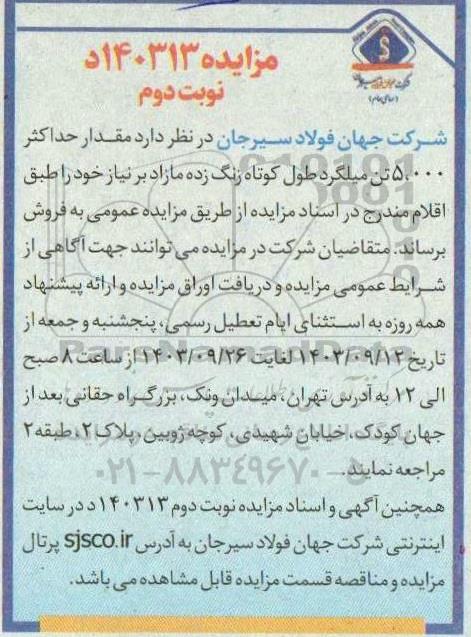 شرکت جهان فولاد سیرجان
(سهامی عام)
مزایده ۱۴۰۳۱۳د
نوبت دوم
شرکت جهان فولاد سیرجان در نظر دارد مقدار حداکثر
۵،۰۰۰ تن میلگرد طول کوتاه زنگ زده مازاد بر نیاز خود را طبق
اقلام مندرج در اسناد مزایده از طریق مزایده عمومی به فروش
برساند. متقاضیان شرکت در مزایده می توانند جهت آگاهی از
شرایط عمومی مزایده و دریافت اوراق مزایده و ارائه پیشنهاد
همه روزه به استثنای ایام تعطیل رسمی، پنجشنبه و جمعه از
تاریخ ۱۴۰۳/۰۹/۱۲ لغایت ۱۴۰۳/۰۹/۲۶ از ساعت ۸ صبح
الی ۱۲ به آدرس تهران، میدان ونک، بزرگراه حقانی بعد از
جهان کودک، خیابان شهیدی، کوچه ژوبین، پلاک ۲، طبقه ۲
مراجعه نمایند.
۰۲۱-۸۸۳۴۹۶۷۰-۵
همچنین آگهی و اسناد مزایده نوبت دوم ۱۴۰۳۱۳ د در سایت
اینترنتی شرکت جهان فولاد سیرجان به آدرس sjsco.ir پرتال
مزایده و مناقصه قسمت مزایده قابل مشاهده می باشد.